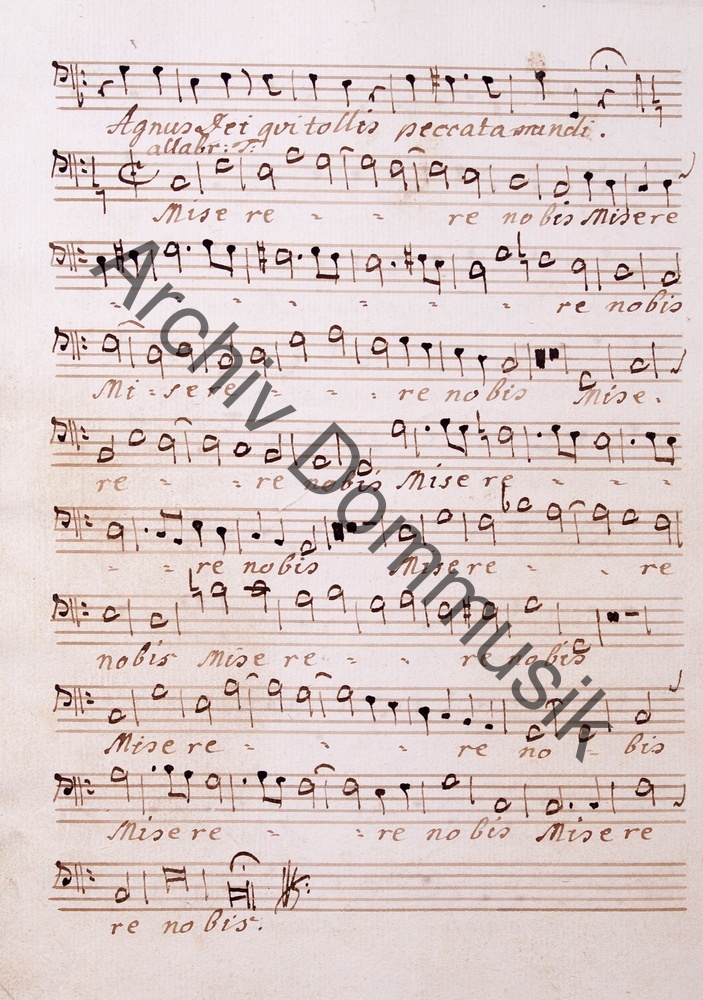 Agnus Dei qui tollis peccata mundi.
allabr: T:
Mise re - - re nobis Misere
- - - - - - - re nobis
Mi - se re - - re nobis Mise.
re - - re nobis Mise re - - -
- - re nobis Misere - - re
nobis Mise re - - re nobis
Mise re - - - re no - bis
Mise re - - re nobis Mise re
re nobis.
Archiv Dommusik